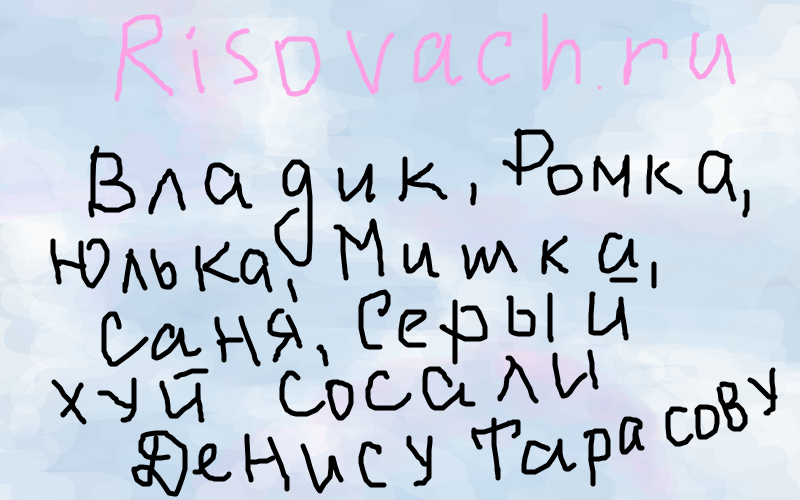 Risovach.ru
Владик, Ромка,
Юлька, Мишка,
Саня, Серый
хуй сосали
Денису Тарасову